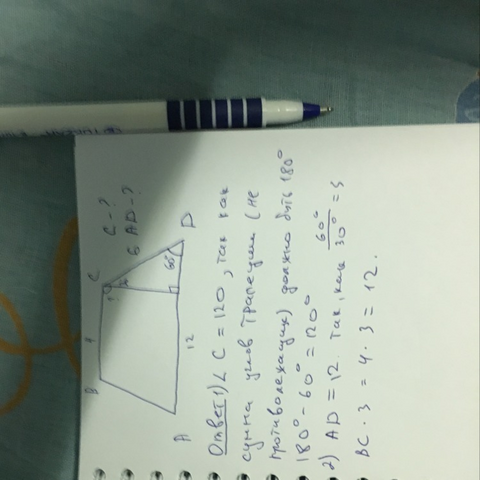 B 4 C
C-?
6 AD-?
60°
A 12 D
Ответ: 1) ∠ C = 120, так как
сумма углов трапеции (не
противолежащих) должно быть 180°
180° - 60° = 120°
2) AD = 12. так, как 60°/30° = 3
BC · 3 = 4 · 3 = 12.